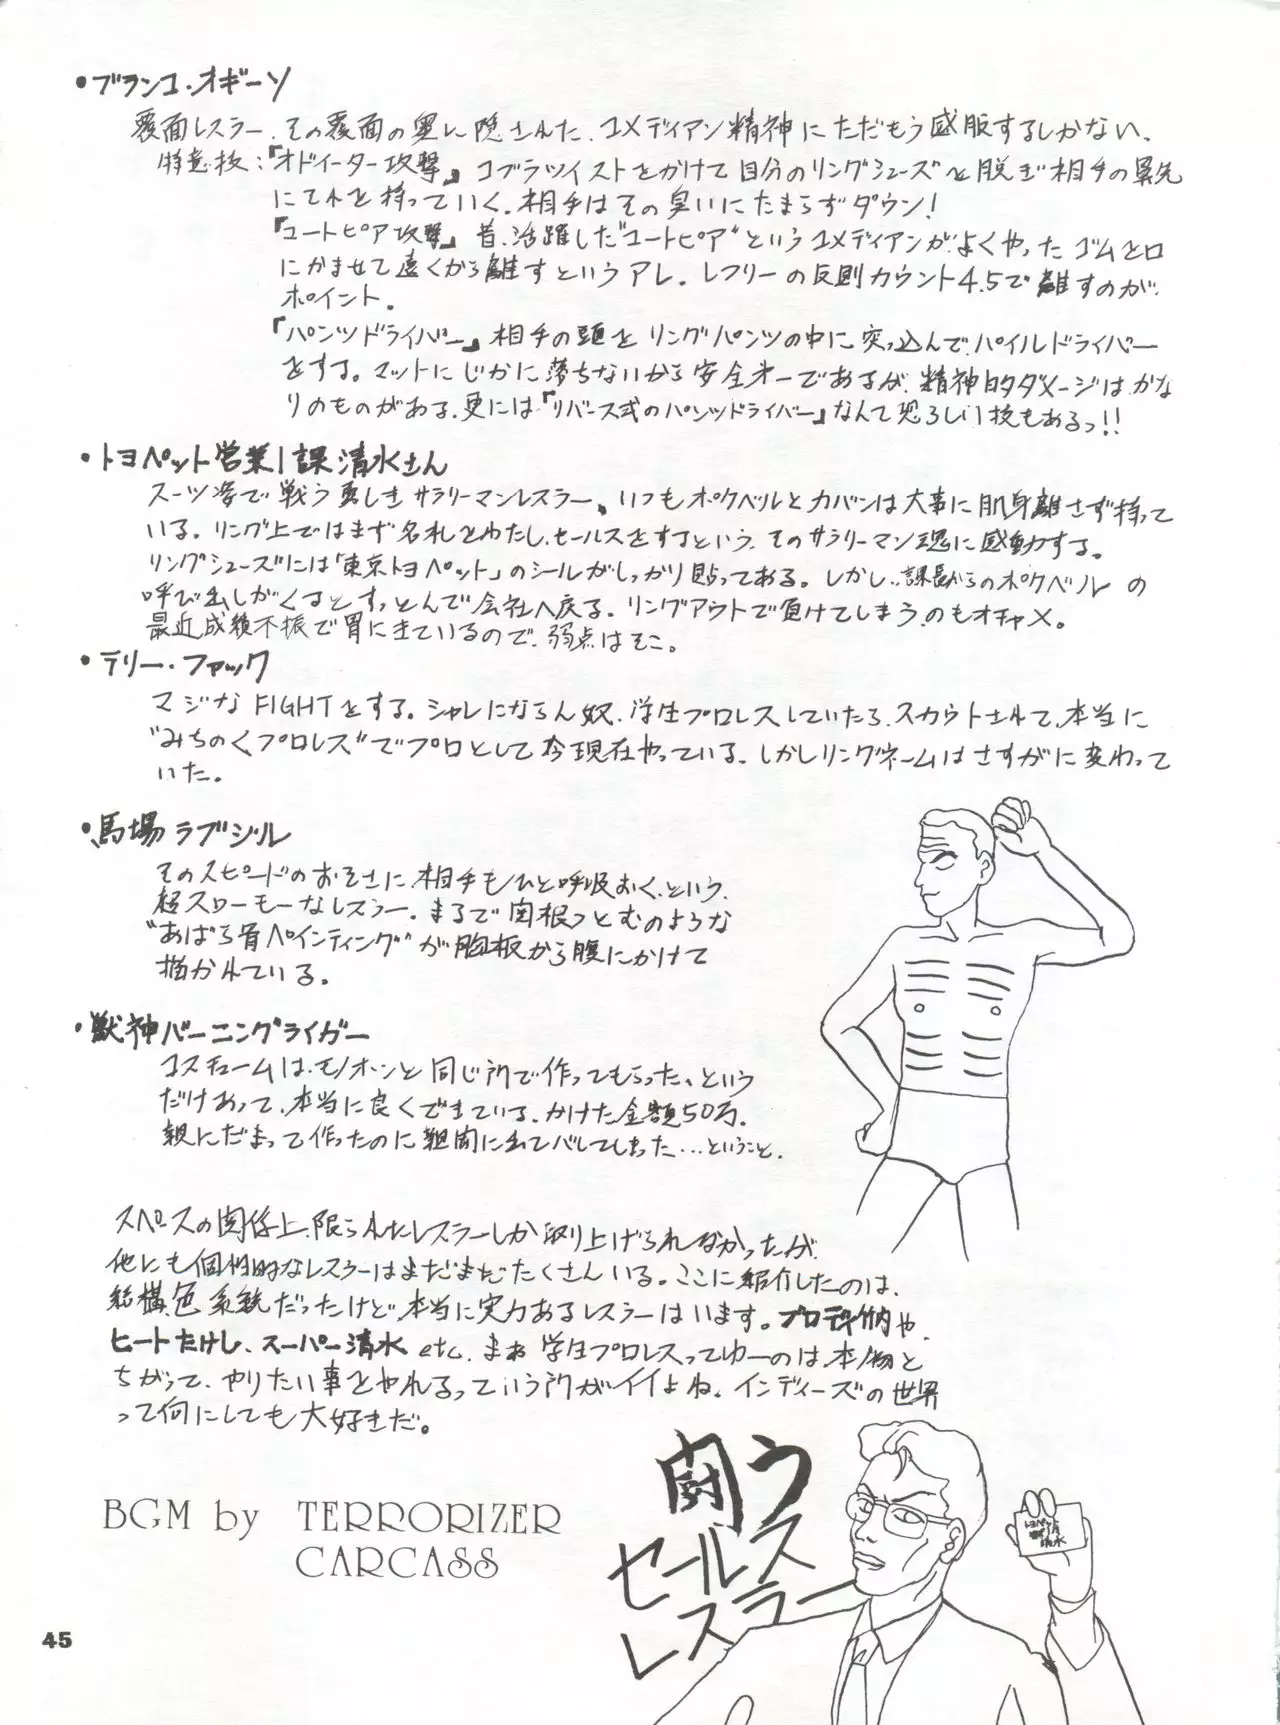 ・ブランコ・オギーソ
覆面レスラー、その覆面の奥に隠された、コメディアン精神にただもう感服するしかない、
特意技：『オドイーター攻撃』コブラツイストをかけて自分のリングシューズを脱ぎ相手の鼻先
にそれを持っていく。相手はその臭いにたまらずダウン！
『ユートピア攻撃』昔、活躍した“ユートピア”というコメディアンがよくやったゴムを口
にかませて遠くから離すというアレ。レフリーの反則カウント4.5で離すのが
ポイント。
『パンツドライバー』相手の頭をリングパンツの中に突っ込んで、パイルドライバー
をする。マットにじかに落ちないから安全オーであるが、精神的ダメージはかな
りのものがある、更には『リバース式のパンツドライバー』なんて恐ろしい技もあるっ!!
・トヨペット営業1課清水さん
スーツ姿で戦う勇しきサラリーマンレスラー、いつもポケベルとカバンは大事に肌身離さず持って
いる。リング上ではまず名札をわたし、セールスをするという、そのサラリーマン魂に感動する。
リングシューズには「東京トヨペット」のシールがしっかり貼ってある。しかし、課長からのポケベルの
呼び出しがくるとすっとんで会社へ戻る。リングアウトで負けてしまうのもオチャメ。
最近成績不振で胃にきているので、弱点はそこ。
・テリー・ファック
マジなFIGHTをする。シャレにならん奴、学生プロレスしていたら、スカウトされて、本当に
“みちのくプロレス”でプロとして今現在やっている。しかしリングネームはさすがに変わって
いた。
・馬場ラブジル
そのスピードのおそさに、相手もひと呼吸おく、という、
超スローモーなレスラー。まるで関根つとむのような
“あばら骨ペインティング”が胸板から腹にかけて
描かれている。
・獣神バーニングライガー
コスチュームは、モノホンと同じ所で作ってもらった、という
だけあって、本当に良くできている、かけた金額50万、
親にだまって作ったのに新聞に出てバレてしまった…ということ。
スペースの関係上、限られたレスラーしか取り上げられなかったが
他にも個性的なレスラーはまだまだたくさんいる。ここに紹介したのは、
結構色系統だったけど、本当に実力あるレスラーはいます。ブロディ竹内や、
ヒートたけし、スーパー清水 etc、まぁ学生プロレスってゆーのは、本物と
ちがって、やりたい事をやれるっていう所がイイよね、インディーズの世界
って何にしても大好きだ。
闘う
セールス
レスラー
トヨペット
清水
BGM by TERRORIZER
CARCASS
45